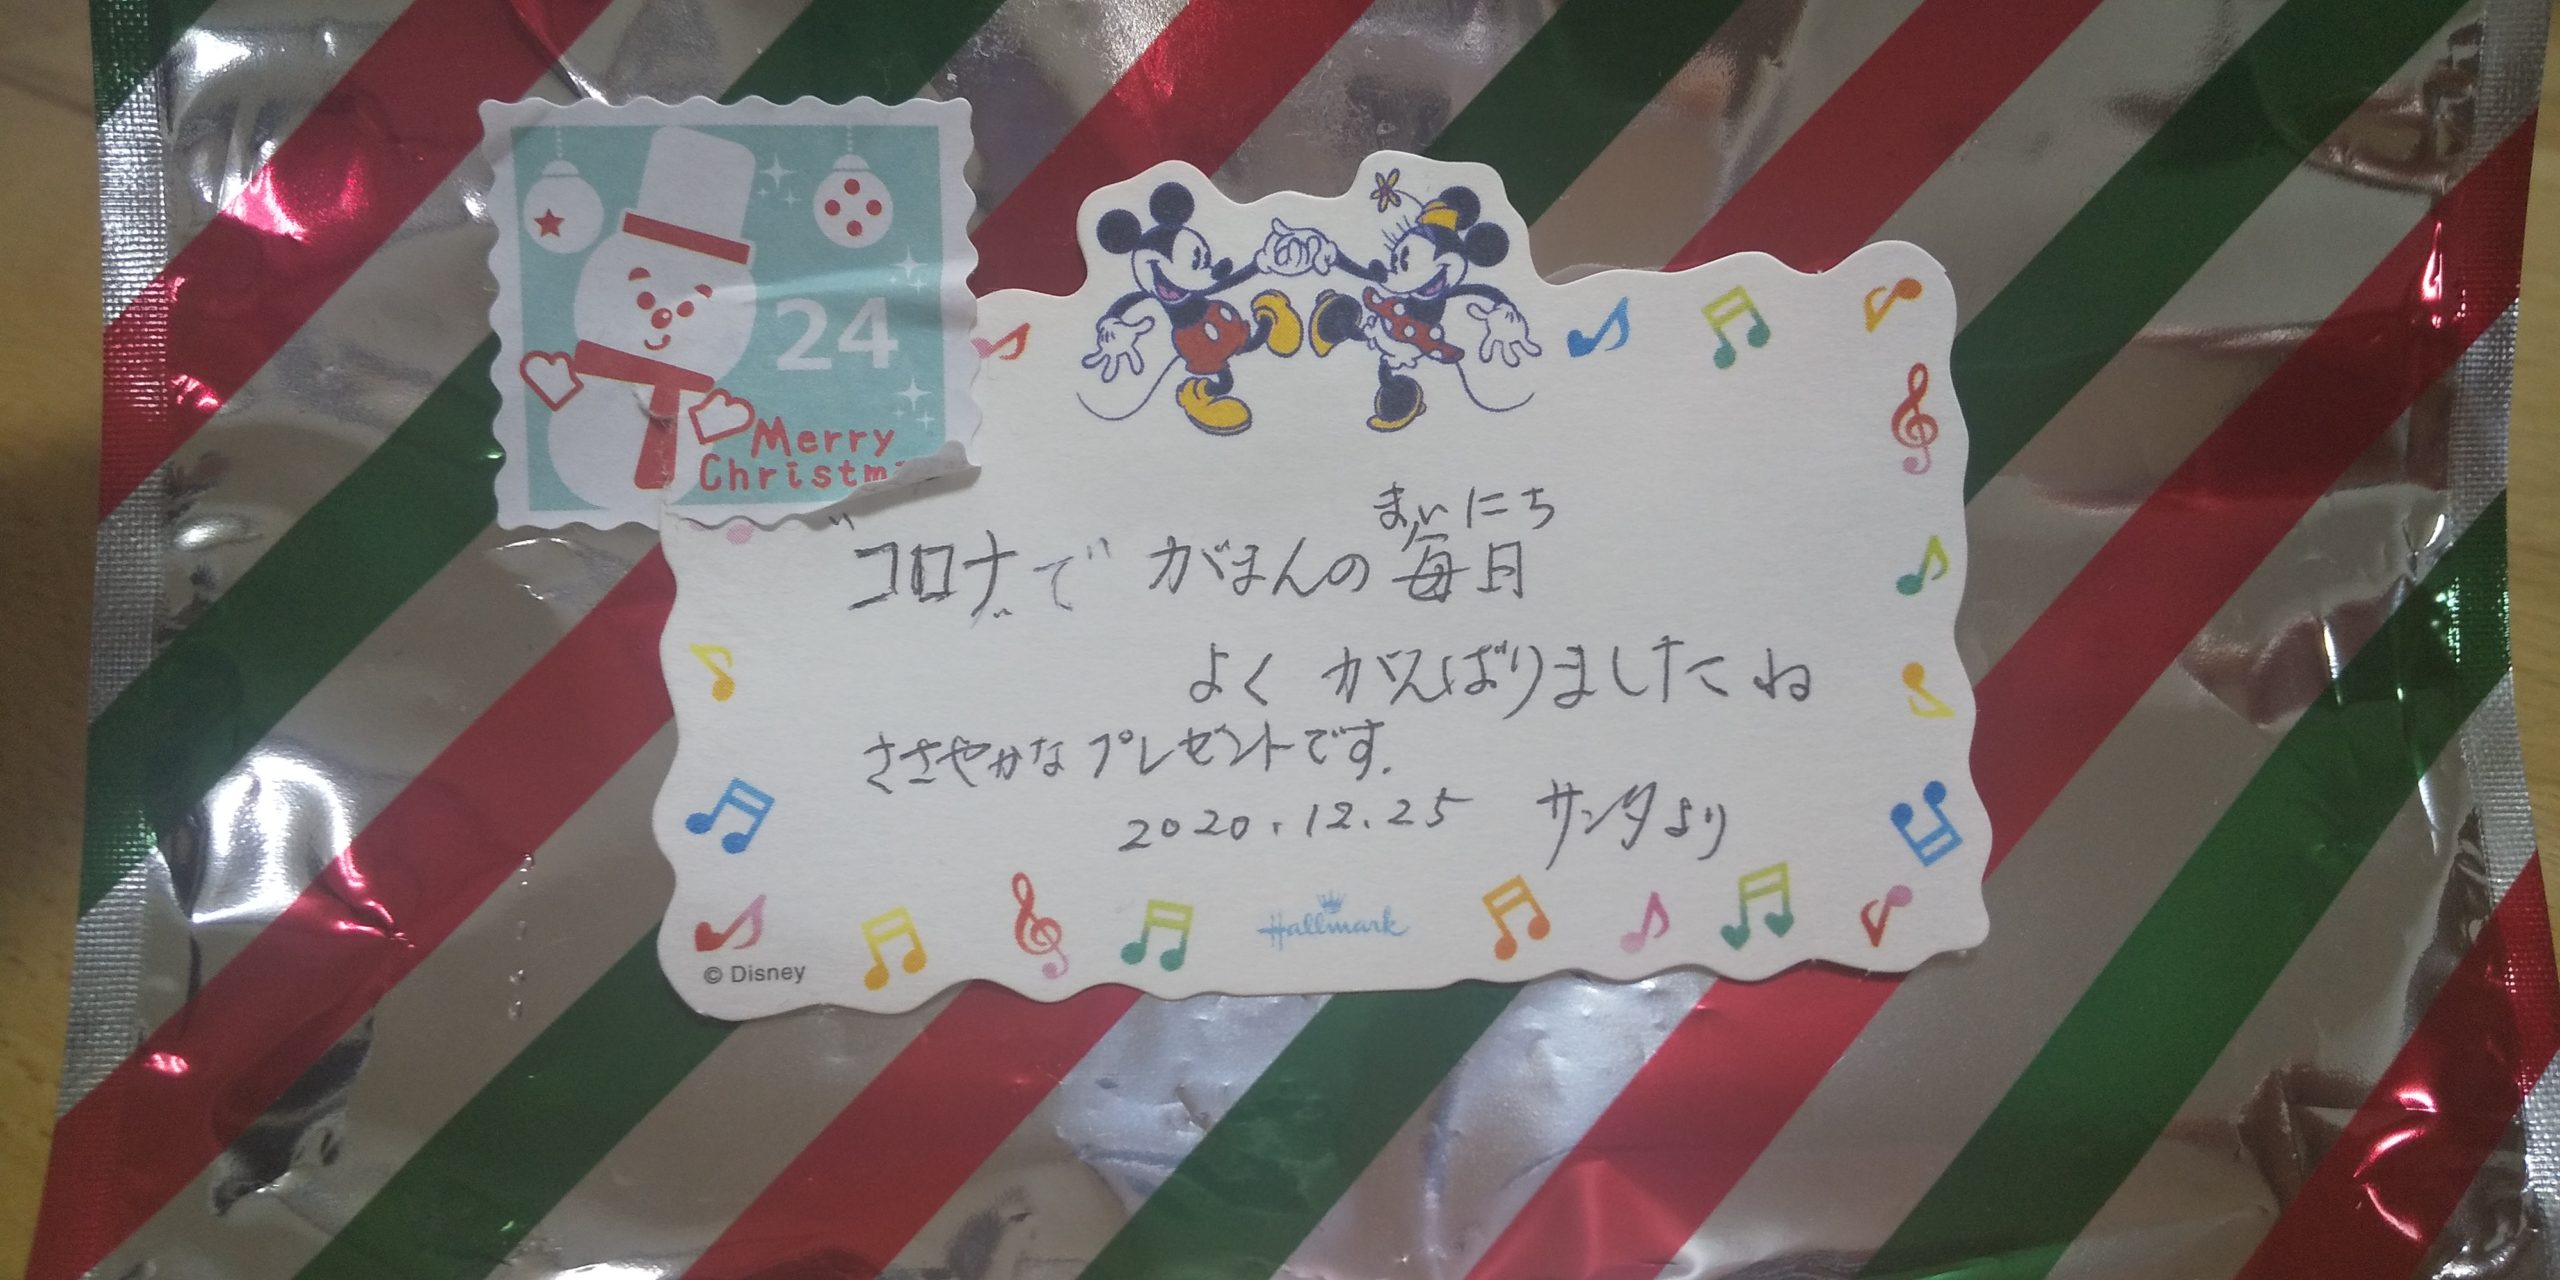 24
Merry
Christm
まいにち
"コロナで" がまんの毎日
よく がんばりましたね
ささやかなプレゼントです.
2020.12.25 サンタより
Hallmark
© Disney